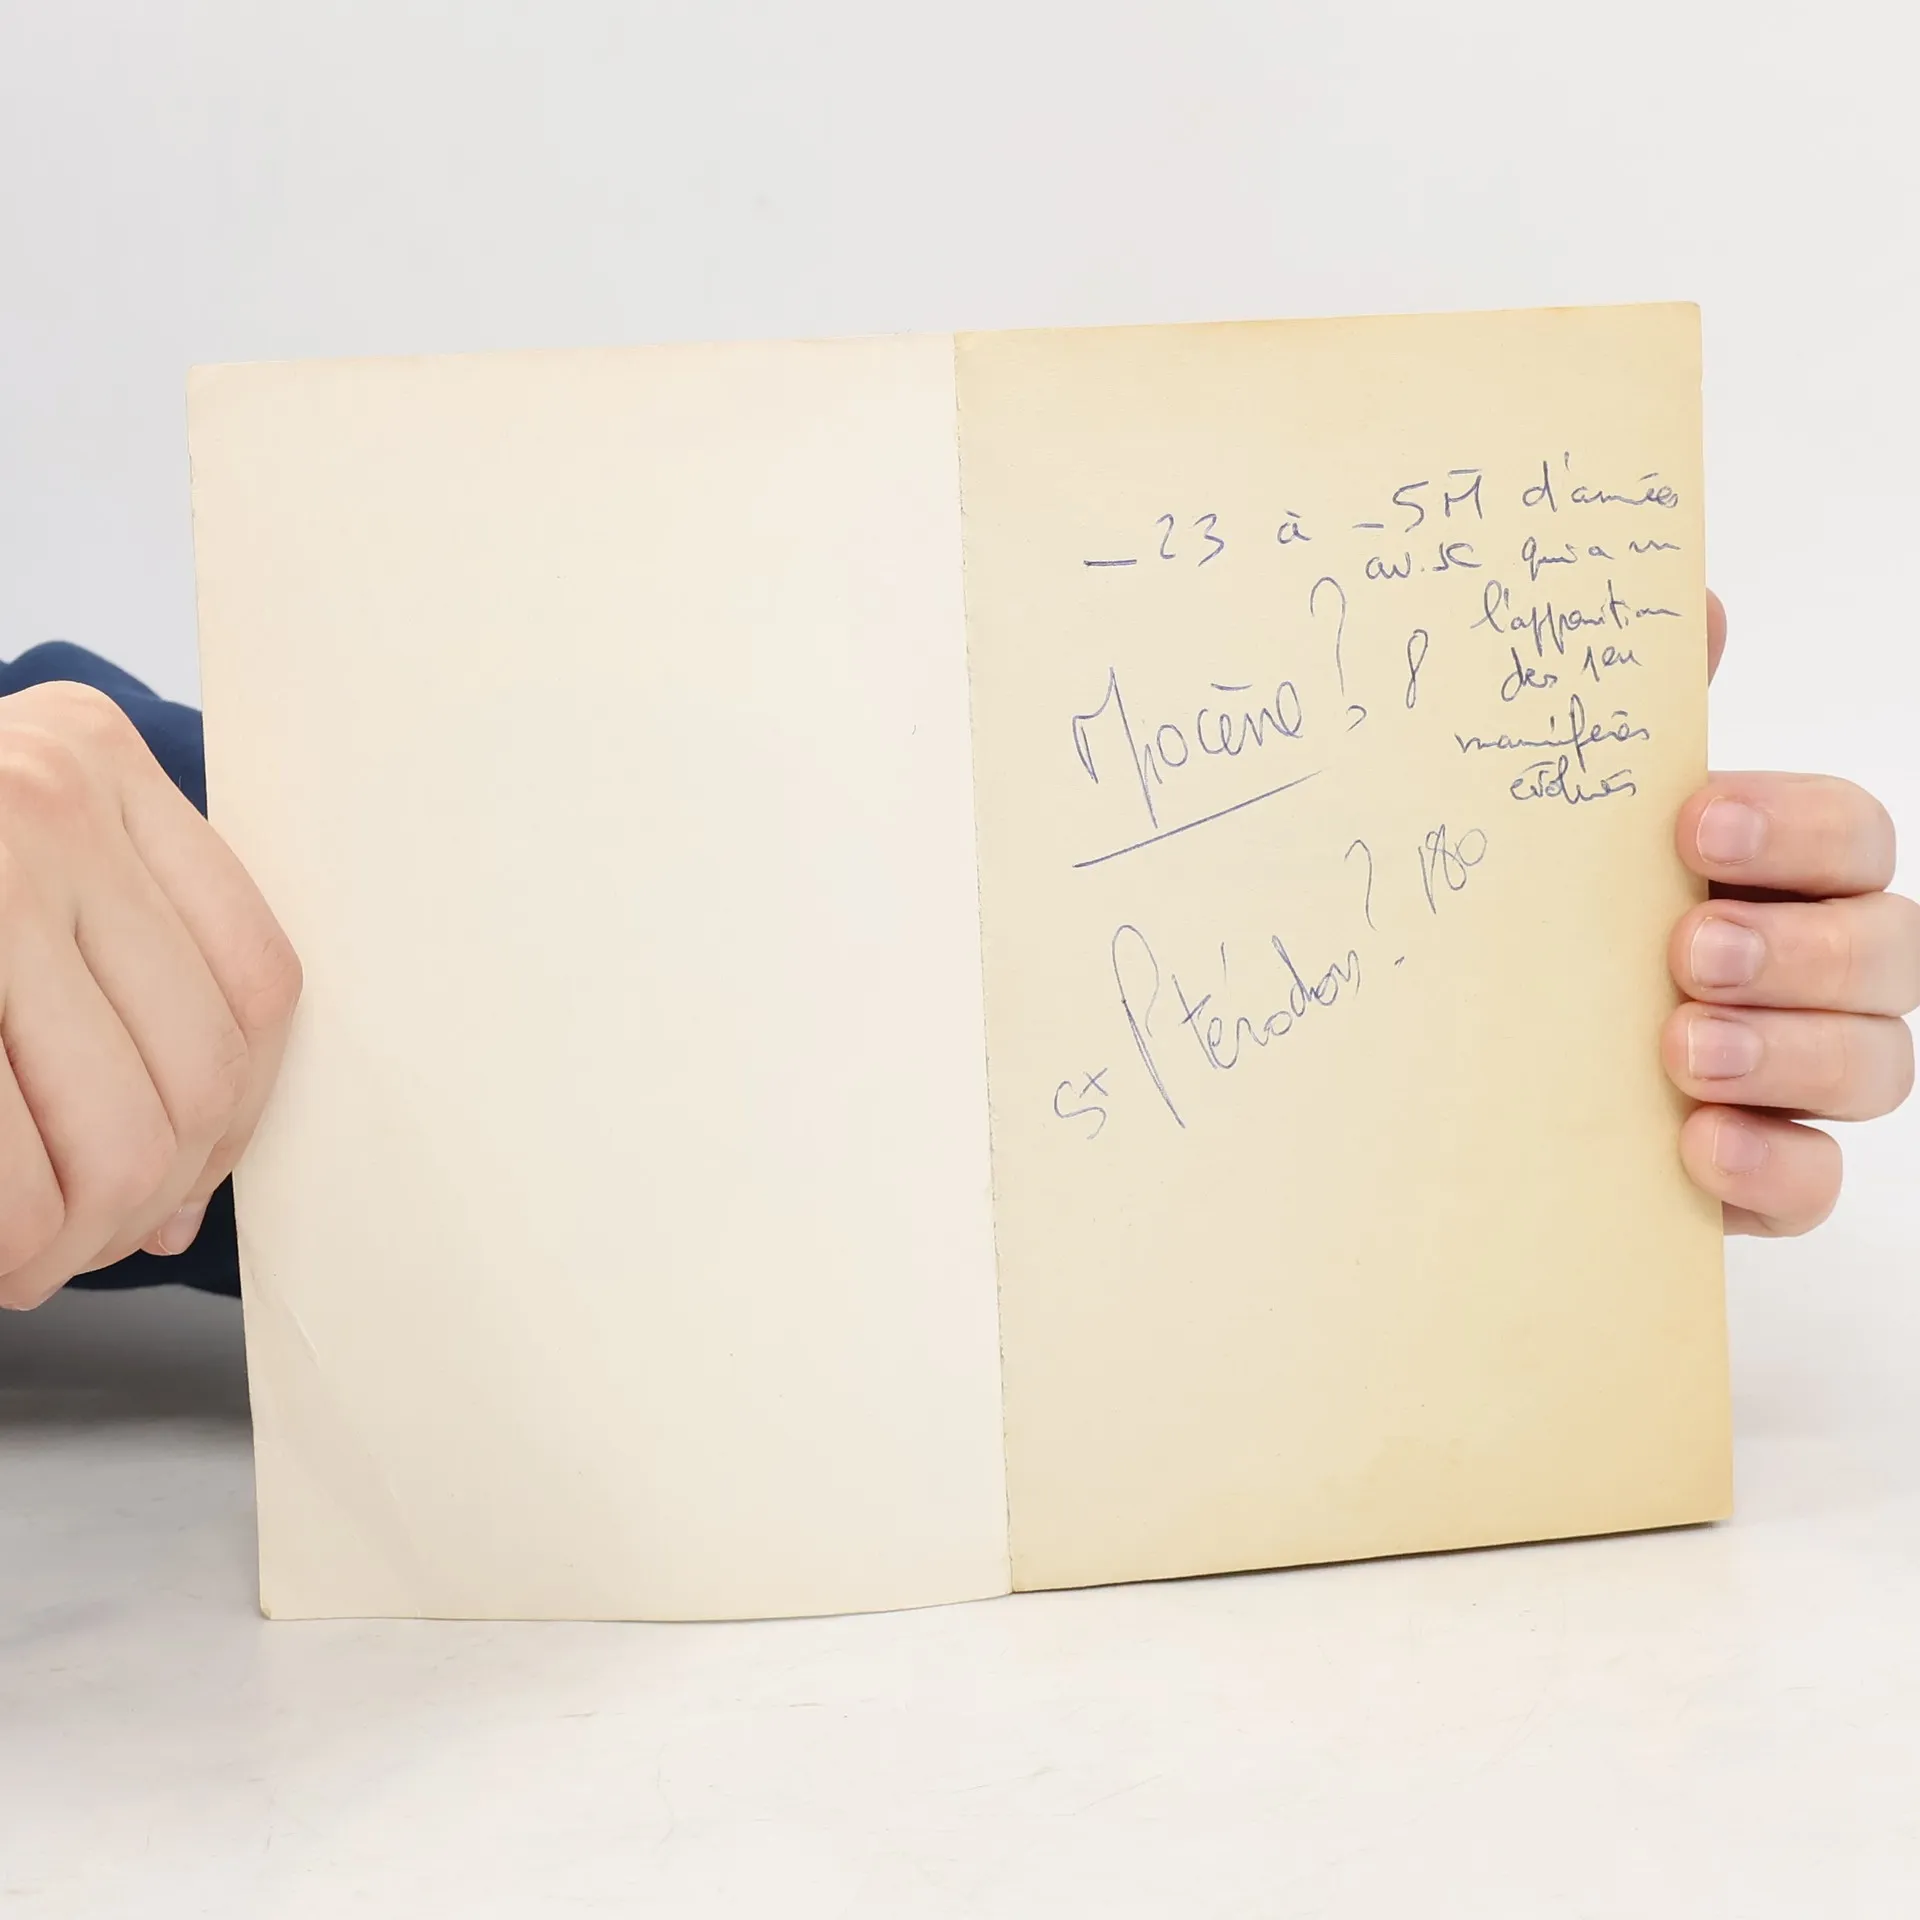 _ 23 à - 5 M d'années
av. JC qui a vu
l'apparition
des 1er
mammifères
évolués
Miocène ? 8
Ptérodon ? 180